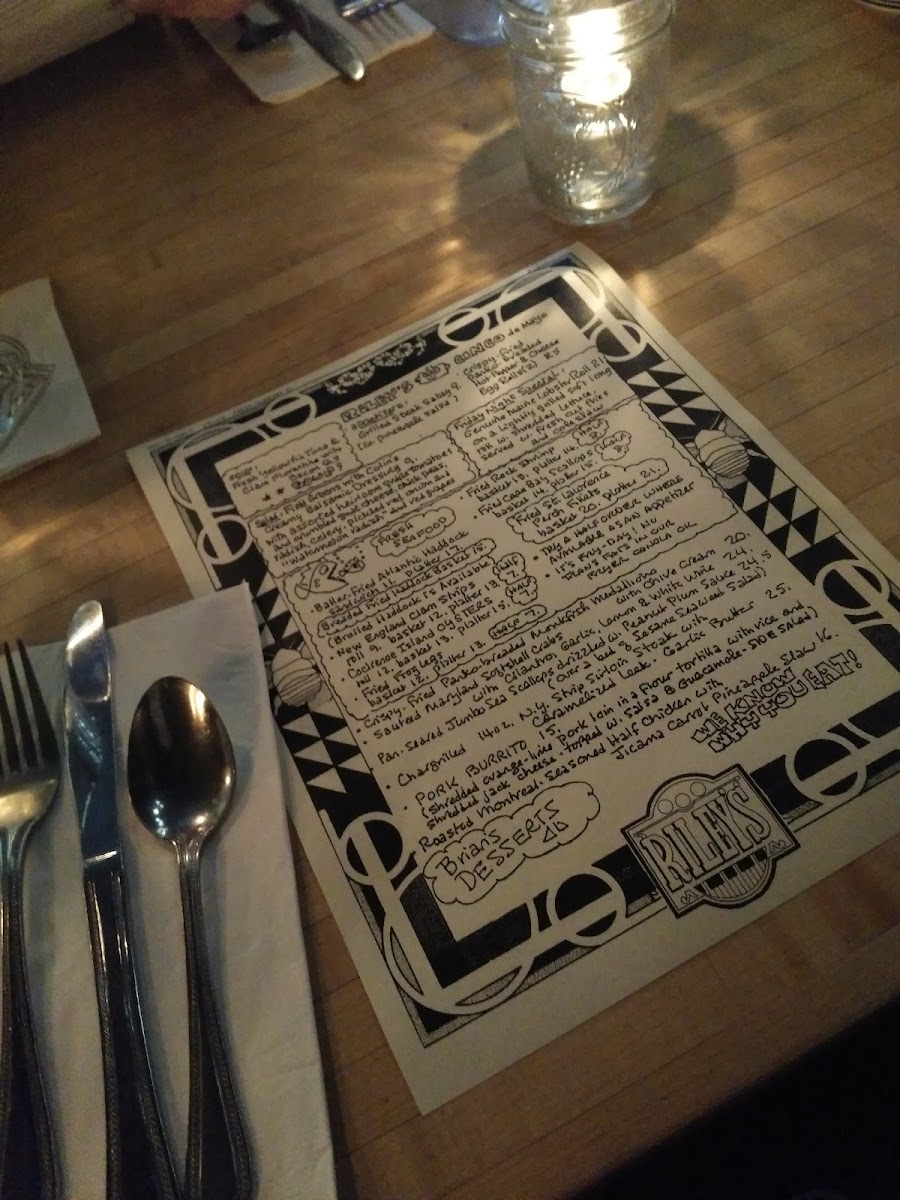 RILEY'S CINCO de Mayo
appetizers:
Grilled Steak Salad 9.
(w. pineapple salsa)
Crispy-Fried
Panko-Breaded
Hot Pepper & Cheese
Egg Rolls (2) 8.5
Soup:
Fresh Yellowfin Tuna &
Clam Minestrone with
Bacon
Friday Night Special!
Genuine Maine Lobster Roll 21
on a lightly grilled soft long
roll w. shredded lettuce
served w. fresh cut fries
and cole slaw
Salad: Field Greens with Colin's
Creamy Balsamic Dressing 9.
with assorted heirloom grape tomatoes
and crumbled
radish, celery, pickled red onion and
"watermelon radish" and red grapes
FRESH
SEAFOOD
• Batter Fried Atlantic Haddock
Sandwich 11. platter 17.
Breaded Fried Haddock Basket 15.
(Broiled Haddock is Available)
New England Clam Strips
roll 9. basket 12. platter 13. Half 7.
• Cochrence Island OYSTERS
roll 12. basket 13. platter 15.
• Fried Frog Legs
basket 12. platter 13. Half 7.
• Fried Rock Shrimp
basket 13. platter 14.
• Fried Cape Bay Scallops
basket 14. platter 15.
Fried St. Lawrence
Perch Fillets
basket 20. platter 21.
• TRY A HALF ORDER WHERE
AVAILABLE AS AN APPETIZER
• IT'S FRY-DAY! NO
TRANS FATS IN OUR
FRYER CANOLA OIL.
• Crispy-Fried Panko-breaded Monkfish Medallions
with Chive Cream 20.
• Sauteed Maryland Softshell Crabs
with Cilantro, Garlic, Lemon & White Wine 24.
• Pan-Seared Jumbo Sea Scallops drizzled w. Peanut Plum Sauce 24.5
(over a bed of Sesame Seaweed Salad)
• Chargrilled 14oz. N.Y. Strip Sirloin Steak with
Caramelized Leek-Garlic Butter 25.
• PORK BURRITO 15.
(shredded orange-lime pork loin in a flour tortilla with rice and
shredded jack cheese-topped w. salsa & Guacamole-SIDE SALAD)
Roasted Montreal-Seasoned Half Chicken with
Jicama Carrot Pineapple Slaw 16.
Brian's
DESSERTS
WE KNOW
WHAT YOU EAT!
RILEY'S